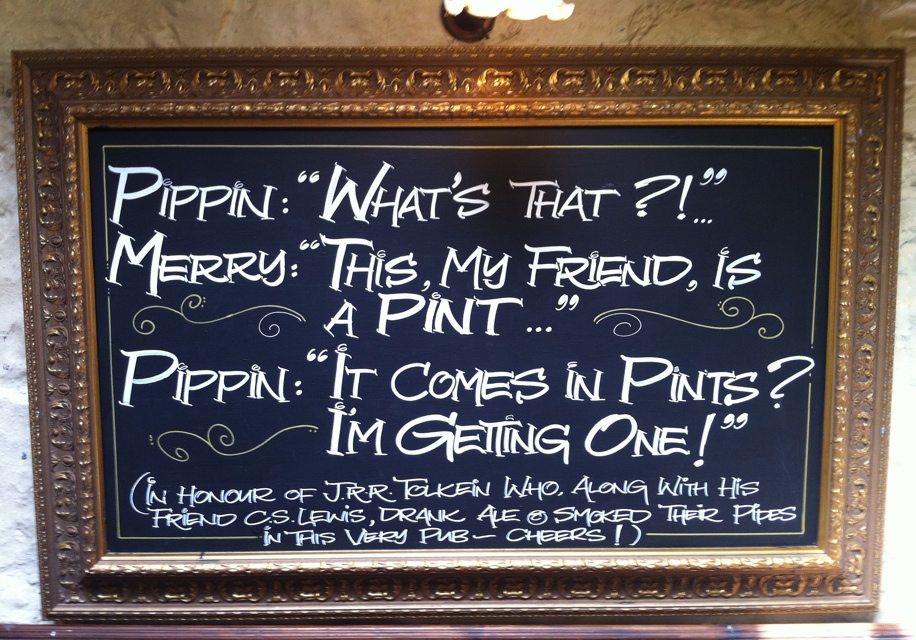 Pippin: “What's that?!...”
Merry: “This, my friend, is
a pint...”
Pippin: “It comes in pints?
I'm getting one!”
(In honour of J.R.R. Tolkein who, along with his
friend C.S. Lewis, drank ale @ smoked their pipes
in this very pub – cheers!)